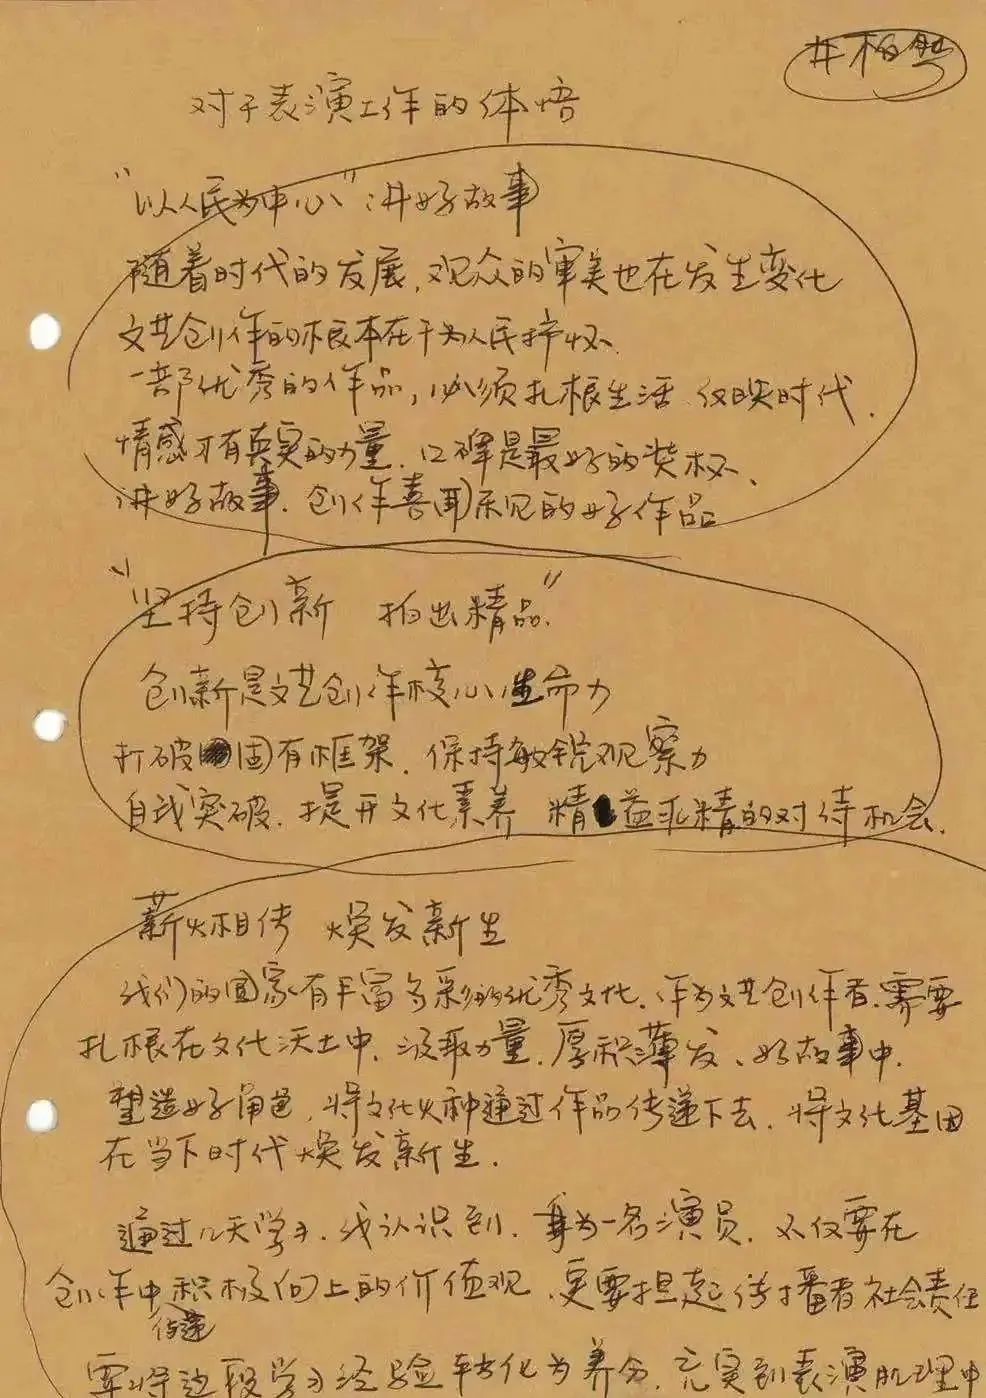 井柏然
对于表演工作的体悟
"以人民为中心"讲好故事
随着时代的发展,观众的审美也在发生变化
文艺创作的根本在于为人民抒怀、
一部优秀的作品,必须扎根生活 反映时代.
情感才有真实的力量.口碑是最好的奖杯、
讲好故事.创作喜闻乐见的好作品
"坚持创新 拍出精品"
创新是文艺创作核心生命力
打破固有框架.保持敏锐观察力
自我突破.提升文化素养 精益求精的对待机会.
薪火相传 焕发新生
我们的国家有丰富多彩的优秀文化、作为文艺创作者.需要
扎根在文化沃土中.汲取力量.厚积薄发、好故事中.
塑造好角色.将文化火种通过作品传递下去.将文化基因
在当下时代焕发新生.
通过几天学习.我认识到.身为一名演员.不仅要在
创作中积极向上的价值观.更要担起传播者社会责任
传递
要将这段学习经验转化为养分.充实到表演肌理中